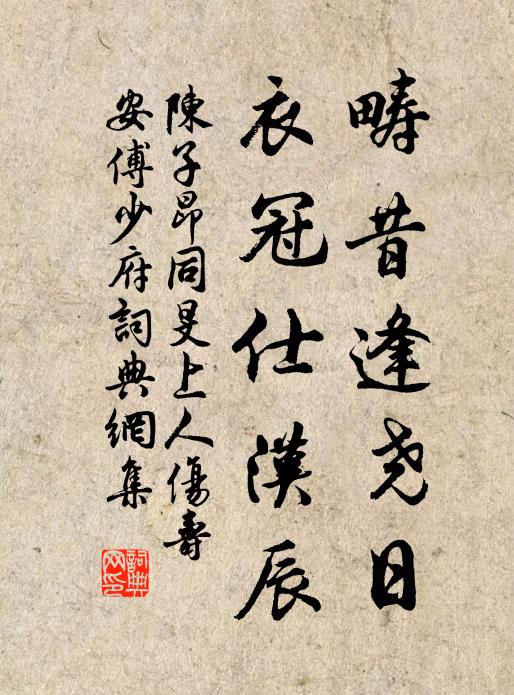 畴昔逢尧日
衣冠仕漢辰
陳子昂同旻上人傷壽
安傅少府詞典網集
詞典网印